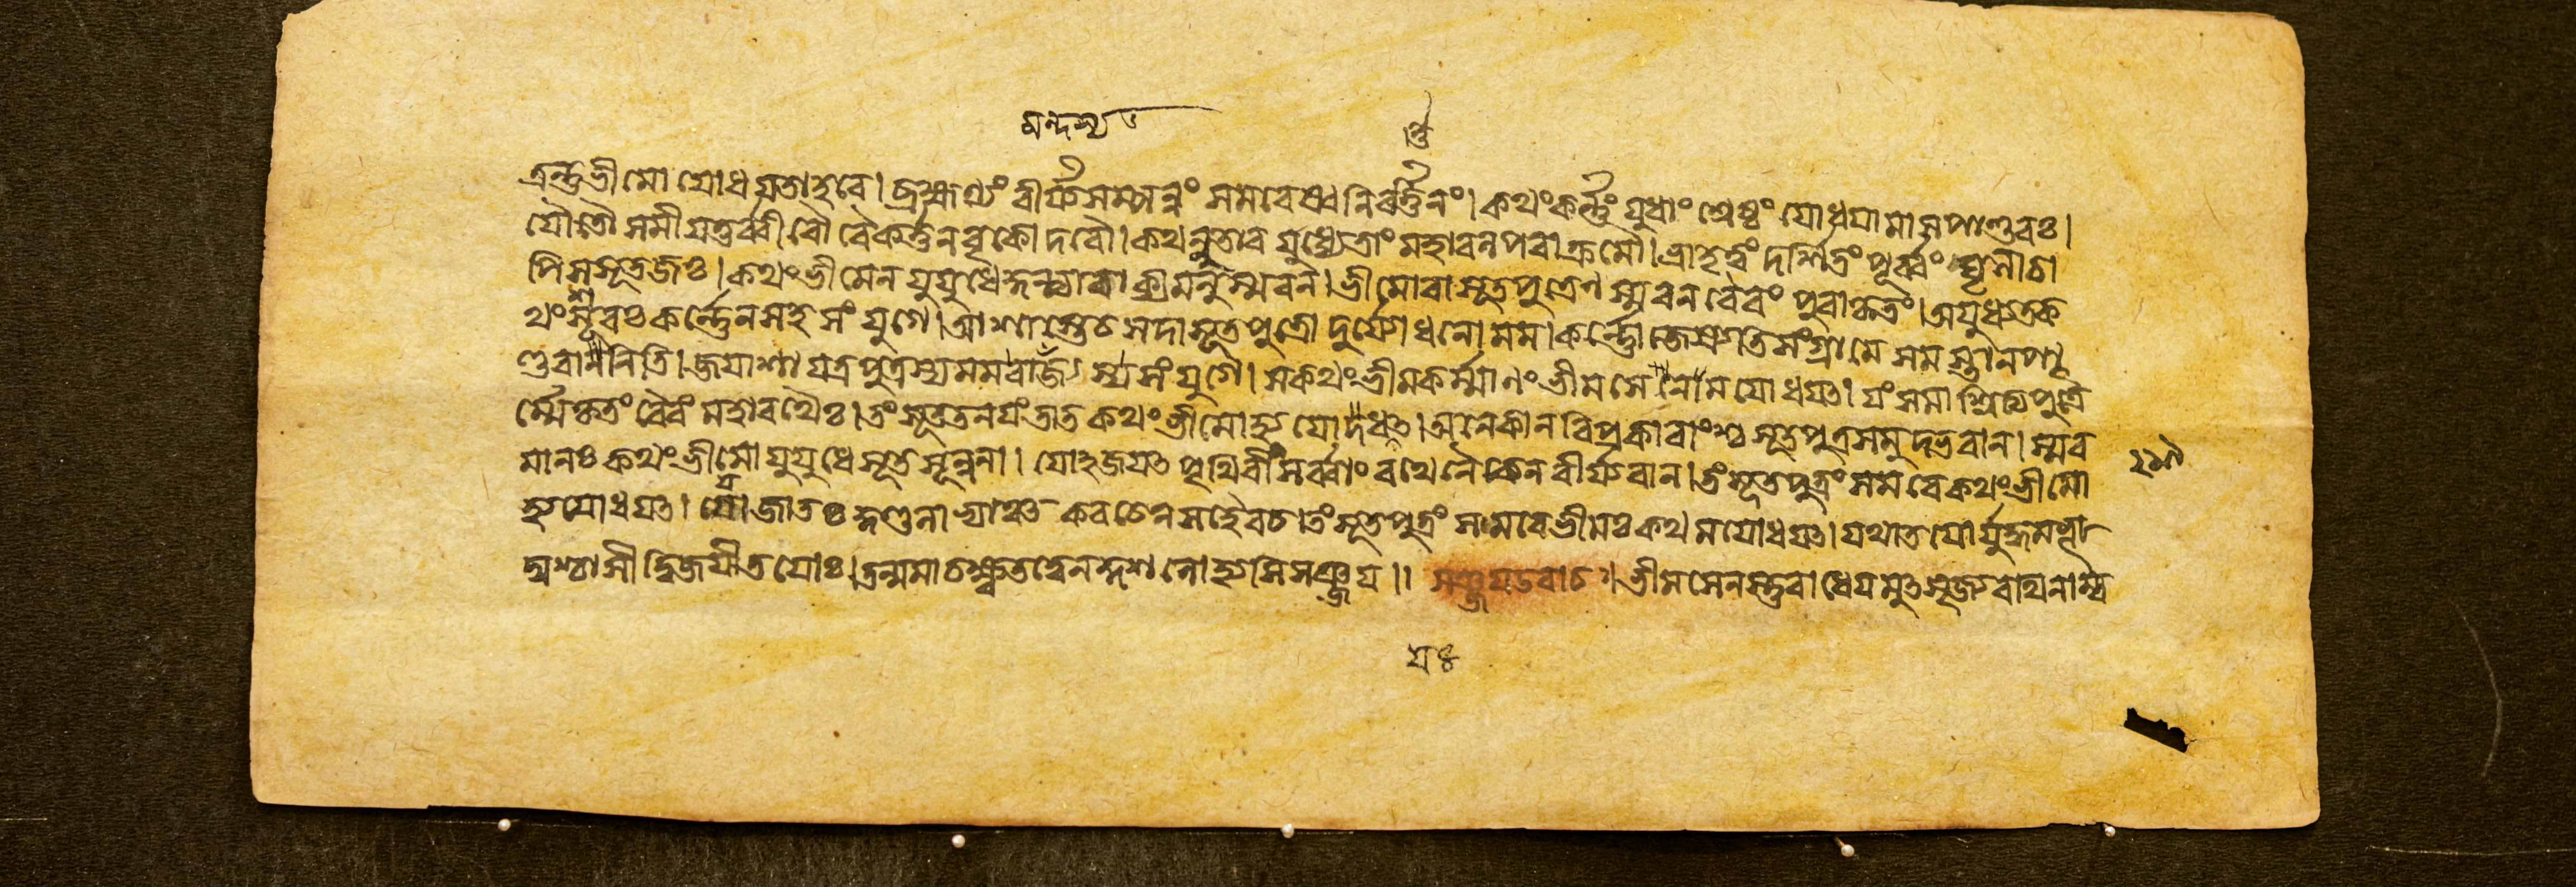 ন্তু
এনন্তু ভীমো যোধযতাহবে। ব্রহ্মণ্যং বীর্য্যসম্পন্নং সমরেষ্বনিবর্ত্তিনং। কথং কর্ণ্ণং যুধাং শ্রেষ্ঠং যোধযামাস পাণ্ডবঃ।
যৌ তৌ সমীযতুর্ব্বীরৌ বৈকর্ত্তনবৃকোদরৌ। কথন্নু তাবযুধ্যেতাং মহাবলপরাক্রমৌ। ভ্রাতৃত্বং দর্শিতং পূর্ব্বং ঘৃণী চা
পি স সূতজঃ। কথং ভীমেন যুযুধে কুন্ত্যা বাক্যমনুস্মরন। ভীমো বা সূতপুত্রেণ স্মরন বৈরং পুরাকৃতং। অযুধ্যত ক
থং শূরঃ কর্ণ্ণেন সহ সংযুগে। আশাস্তে চ সদা সূতপুত্রো দুর্যোধনো মম। কর্ণ্ণো জেষ্যতি সংগ্রামে সমস্তান পা
ণ্ডবানিতি। জযাশা যত্র পুত্রস্য মম সংযুগে। স কথং ভীমকর্ম্মাণং ভীমসেনমযোধযৎ। যং সমাশ্রিত্য পুত্রৈ
র্ম্মে কৃতং বৈরং মহারথৈঃ। তং সূততনযং তাত কথং ভীমো হ্যযোধযৎ। অনেকান বিপ্রকারাংশ্চ সূতপুত্রসমুদ্ভবান। স্মর
মানঃ কথং ভীমো যুযুধে সূতসূনুনা। যোহজযৎ পৃথিবীং সর্ব্বাং রথেনৈকেন বীর্য্যবান। তং সূতপুত্রং সমরে কথং ভীমো
হ্যযোধযৎ। যো জাতঃ কুণ্ডলাভ্যাঞ্চ কবচেন সহৈব চ। তং সূতপুত্রং সমরে ভীমঃ কথমযোধযৎ। যথা তযোর্যুদ্ধমভূ
দ্যশ্চাসীদ্বিজযী তযোঃ। তন্মমাচক্ষ্ব তত্বেন কুশলো হ্যসি সঞ্জয॥ সঞ্জয উবাচ। ভীমসেনস্তু রাধেযমুৎসৃজ্য রথিনাম্ব
যঃ